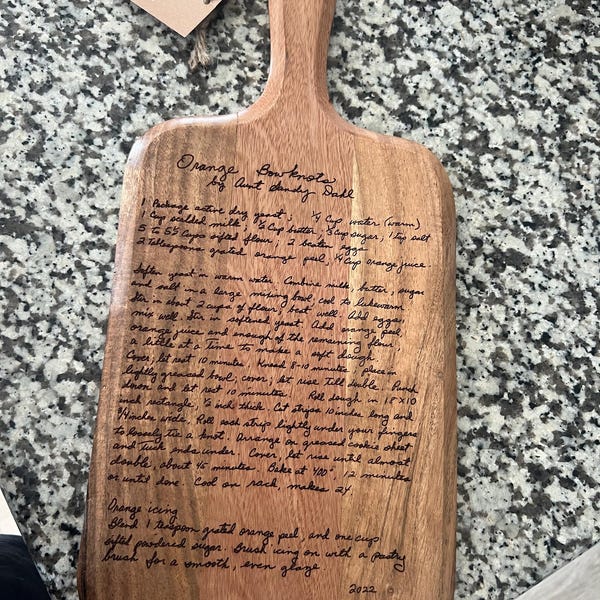 Orange Bowknots
by Aunt Sandy Dahl
1 Package active dry yeast; ¼ Cup water (warm)
1 Cup scalded milk; ½ Cup butter; ⅓ Cup sugar; 1 tsp salt
5 to 5½ Cups sifted flour; 2 beaten eggs
2 Tablespoons grated orange peel, ¼ Cup orange juice
Soften yeast in warm water. Combine milk, butter, sugar
and salt in a large mixing bowl; cool to lukewarm
Stir in about 2 cups of flour; beat well. Add eggs;
mix well. Stir in softened yeast. Add orange peel,
orange juice and enough of the remaining flour,
a little at a time to make a soft dough.
Cover; let rest 10 minutes. Knead 8-10 minutes, place in
lightly greased bowl; cover; let rise till double. Punch
down and let rest 10 minutes. Roll dough in 18x10
inch rectangle, ½ inch thick. Cut strips 10 inches long and
¾ inches wide. Roll each strip lightly under your fingers
to loosely tie a knot. Arrange on greased cookie sheet
and tuck ends under. Cover, let rise until almost
double, about 45 minutes. Bake at 400°, 12 minutes
or until done. Cool on rack, makes 24.
Orange icing
Blend 1 teaspoon grated orange peel, and one cup
sifted powdered sugar. Brush icing on with a pastry
brush for a smooth, even glaze
2022